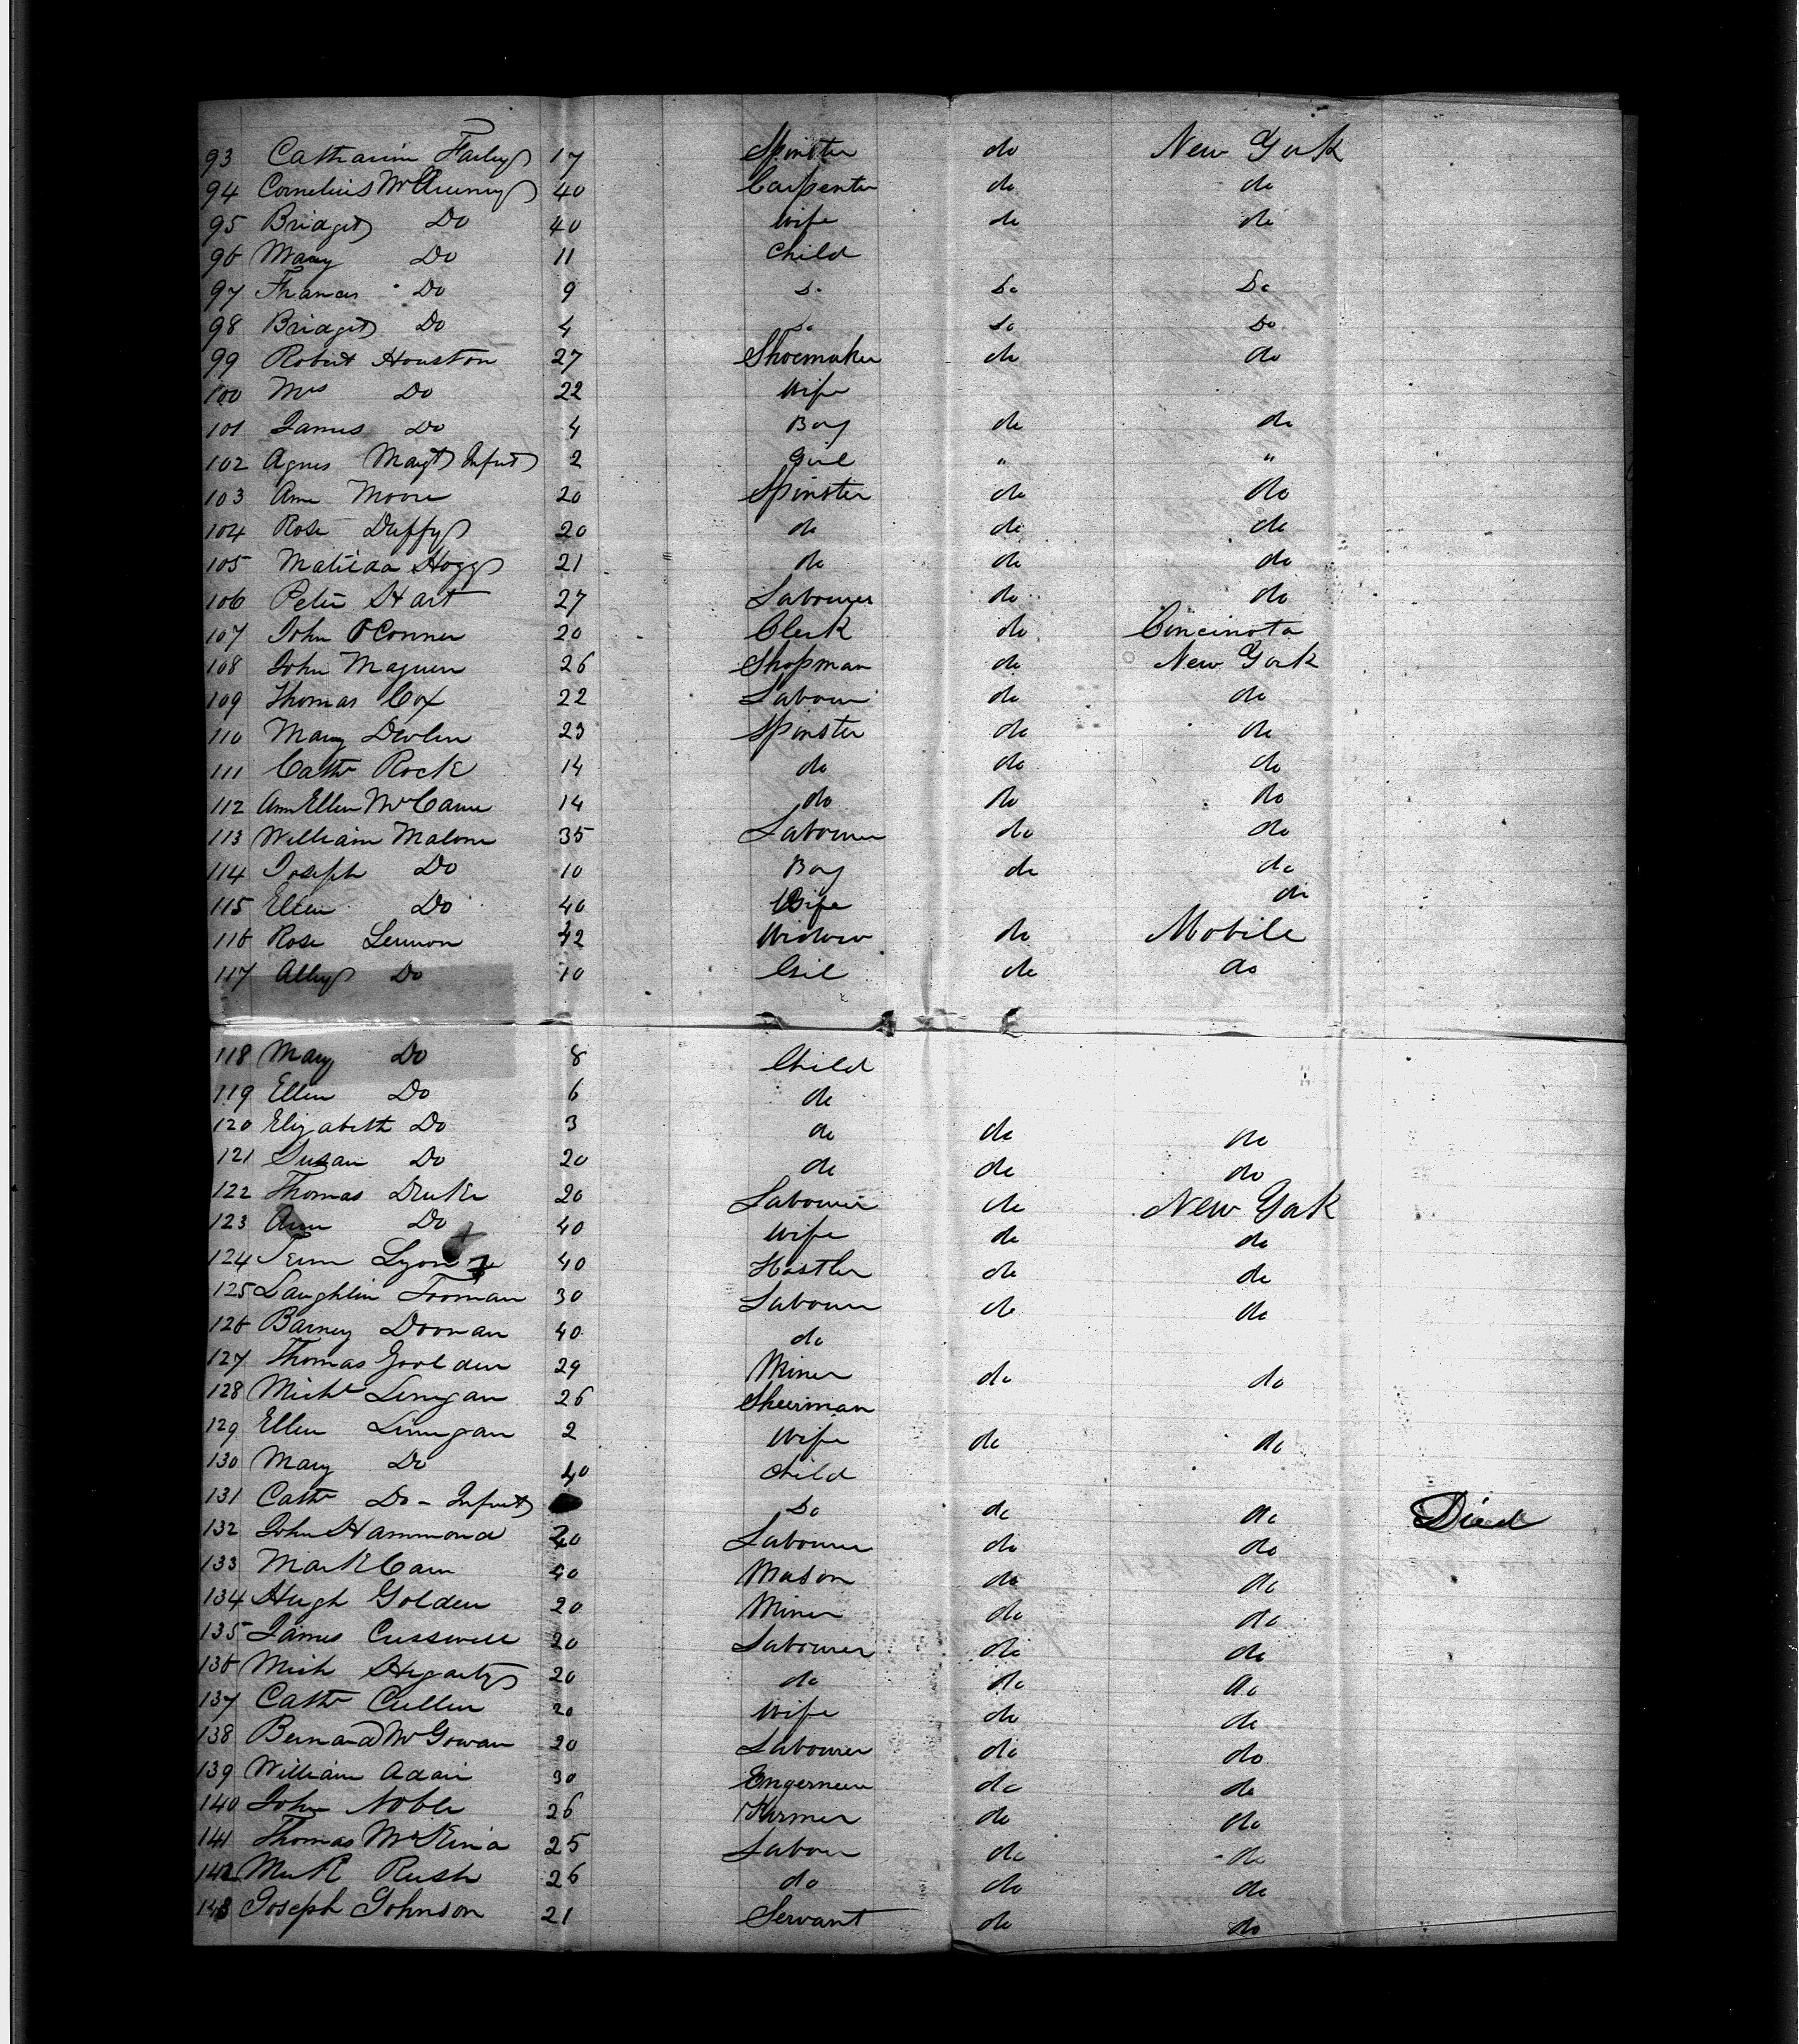 93 Catharine Farley 17 Spinster do New York
94 Cornelius 40 Carpenter do do
95 Bridget Do 40 Wife do do
96 Mary Do 11 Child
97 Frances Do 9 Do Do Do
98 Bridget Do 4 Do Do Do
99 Robert Houston 27 Shoemaker do do
100 Mrs Do 22 Wife
101 James Do 4 Boy do do
102 Agnes Magt Infant 2 Girl " "
103 Ann Moore 20 Spinster do do
104 Rose Duffy 20 do do do
105 Matilda Hogg 21 do do do
106 Peter Hart 27 Labourer do do
107 John O'Conner 20 Clerk do Cincinota
108 John Maguire 26 Shopman do New York
109 Thomas Cox 22 Labour do do
110 Mary Devlin 23 Spinster do do
111 Cathe Rock 14 do do do
112 Ann Ellen McCanne 14 do do do
113 William Malone 35 Labourer do do
114 Joseph Do 10 Boy do do
115 Ellen Do 40 Wife do
116 Rose Lennon 42 Widow do Mobile
117 Alley Do 10 Girl do do
118 Mary Do 8 Child
119 Ellen Do 6 do
120 Elizabeth Do 3 do do do
121 Susan Do 20 do do do
122 Thomas Duke 20 Labourer do New York
123 Ann Do 40 Wife do do
124 Lyon 40 Hostler do do
125 Laughlin Tooman 30 Labourer do do
126 Barney Doonan 40 do
127 Thomas Goolden 29 Miner do do
128 Michl Linigan 26 Sheerman
129 Ellen Linnigan 2 Wife do do
130 Mary Do 40 Child
131 Cathe Do - Infant Do do do Died
132 John Hammond 20 Labourer do do
133 Mark Cain 40 Mason do do
134 Hugh Golden 20 Miner do do
135 James Cusswell 20 Labourer do do
136 Mich Hegarty 20 do do do
137 Cathe Cullen 20 Wife do do
138 Bernard McGowan 20 Labourer do do
139 William Adair 30 Engerneer do do
140 John Noble 26 Farmer do do
141 Thomas McKina 25 Labour do do
142 Rush 26 do do do
143 Joseph Johnson 21 Servant do do